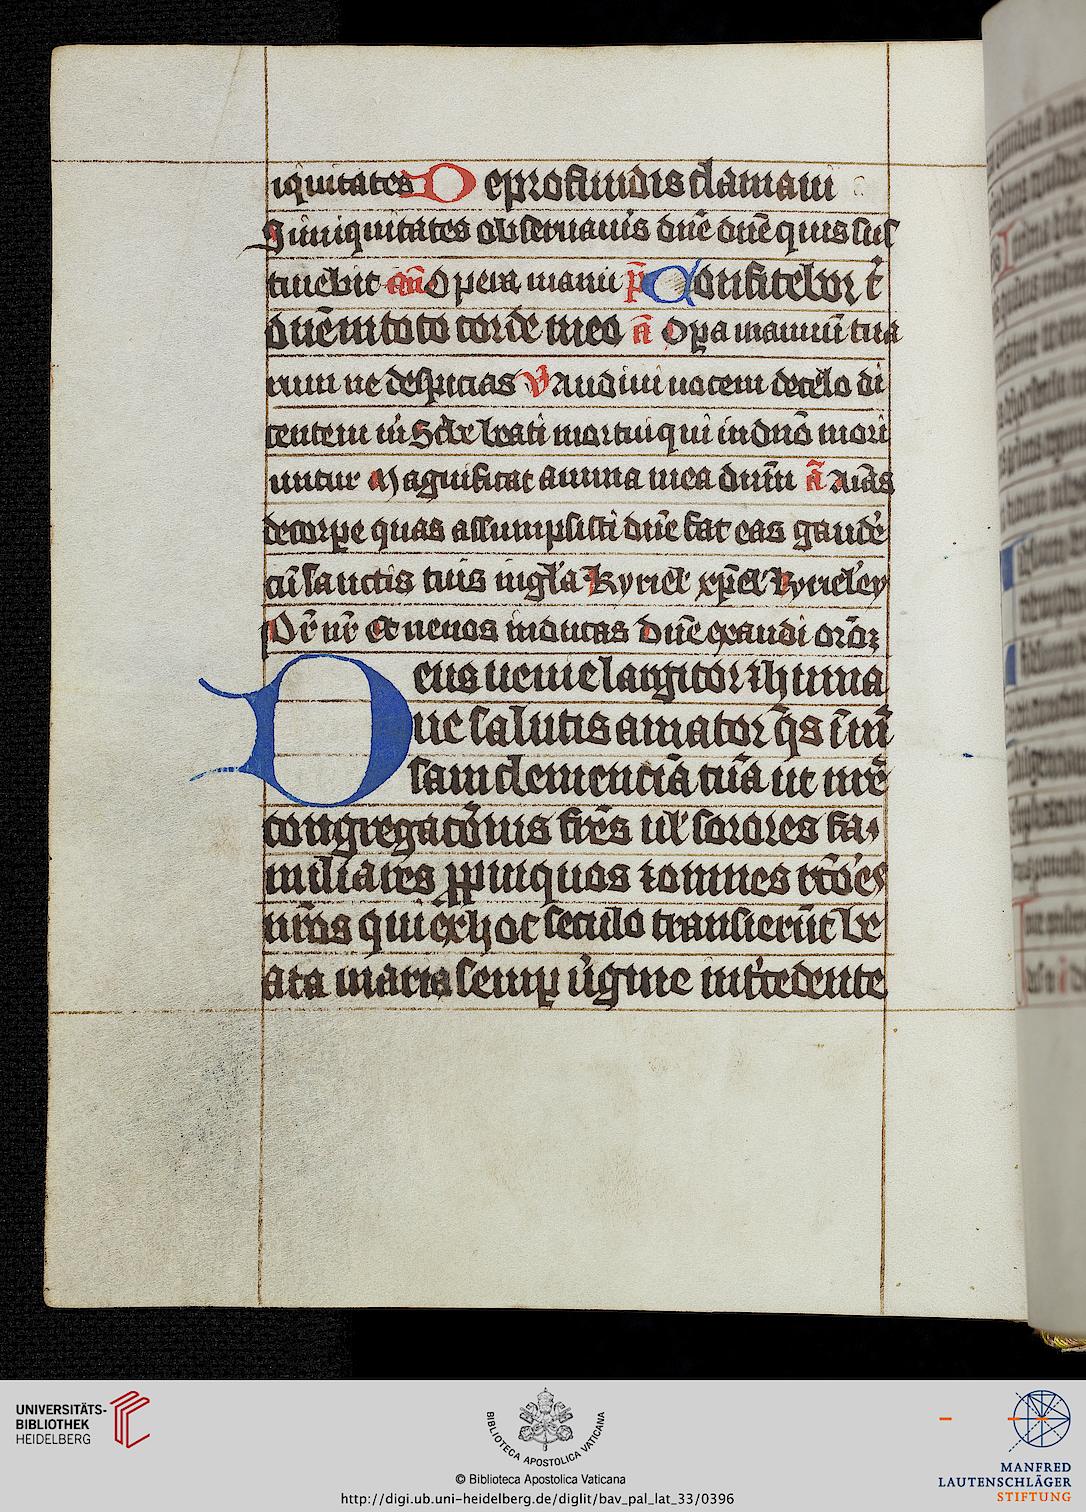 iquitates De profundis clamaui
Si iniquitates obseruaueris dn̄e dn̄e quis sus
tinebit an̄ Opera manu p̄s Confitebor t'
dn̄e in toto corde meo ā Opa manuū tua
rum ne despicias V Audiui uocem de celo di
centem m̄ Sc'be beati mortui qui in dn̄o mori
untur Magnificat anima mea dn̄m ā Aīas
de corpe quas assumpsisti dn̄e fac eas gaudē
cū sanctis tuis in gl'a Kyriel' xp̄el' Kyrieley
Pr̄ nr̄ Et ne nos inducas Dn̄e exaudi orōꝫ
Deus uenie largitor ⁊ huma
ne salutis amator q̄s im̄
sam clemenciā tuā ut nr̄e
congregacōnis fr̄es ul' sorores fa
miliares ꝓpinquos ⁊ omnes
nr̄os qui ex hoc seculo transierūt be
ata maria semp uigine int'cedente
UNIVERSITÄTS-
BIBLIOTHEK
HEIDELBERG
BIBLIOTECA APOSTOLICA VATICANA
© Biblioteca Apostolica Vaticana
http://digi.ub.uni-heidelberg.de/diglit/bav_pal_lat_33/0396
MANFRED
LAUTENSCHLÄGER
STIFTUNG